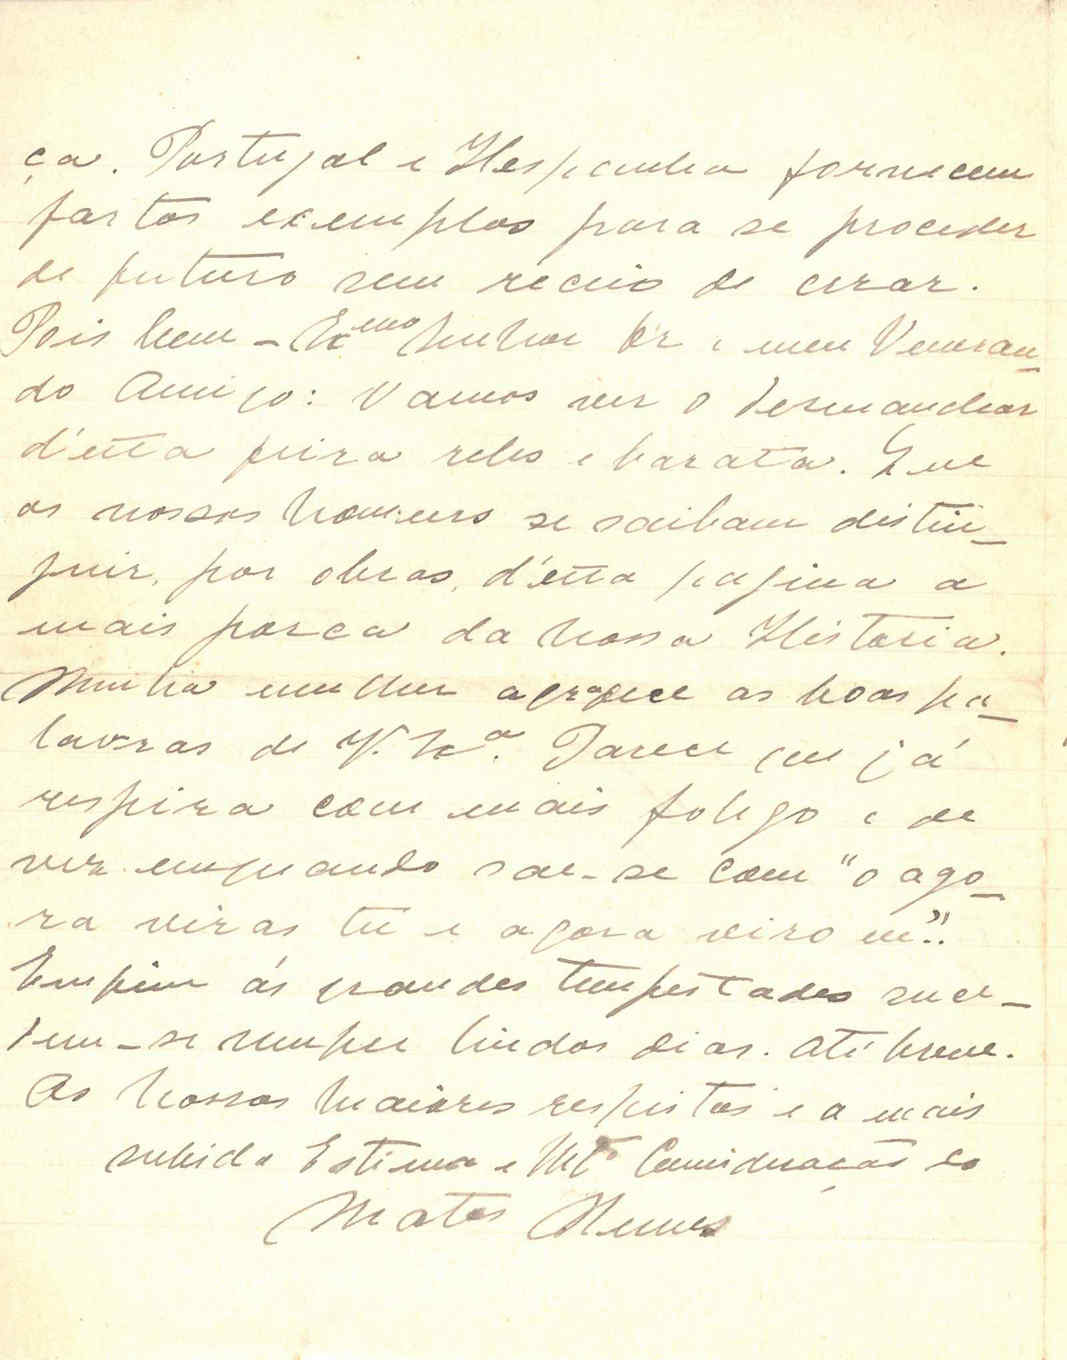 ça. Portugal e Hespanha fornecem
fartos exemplos para se proceder
de futuro sem receio de errar.
Pois bem - Exmo Senhor Dr e meu Veneran-
do Amigo: Vamos ver o desmanchar
d'esta feira reles e barata. Que
os nossos homens se saibam distin-
guir, por obras, d'esta pagina a
mais porca da nossa Historia.
Minha mulher agradece as boas pa-
lavras de V. Exa. Parece que já
respira com mais folego e de
vez emquando sae-se com "o ago-
ra viras tu e agora viro eu"..
Emfim ás grandes tempestades suce-
dem-se sempre lindos dias. Até breve.
Os nossos maiores respeitos e a mais
subida Estima e Mta Consideração do
Matos Nunes